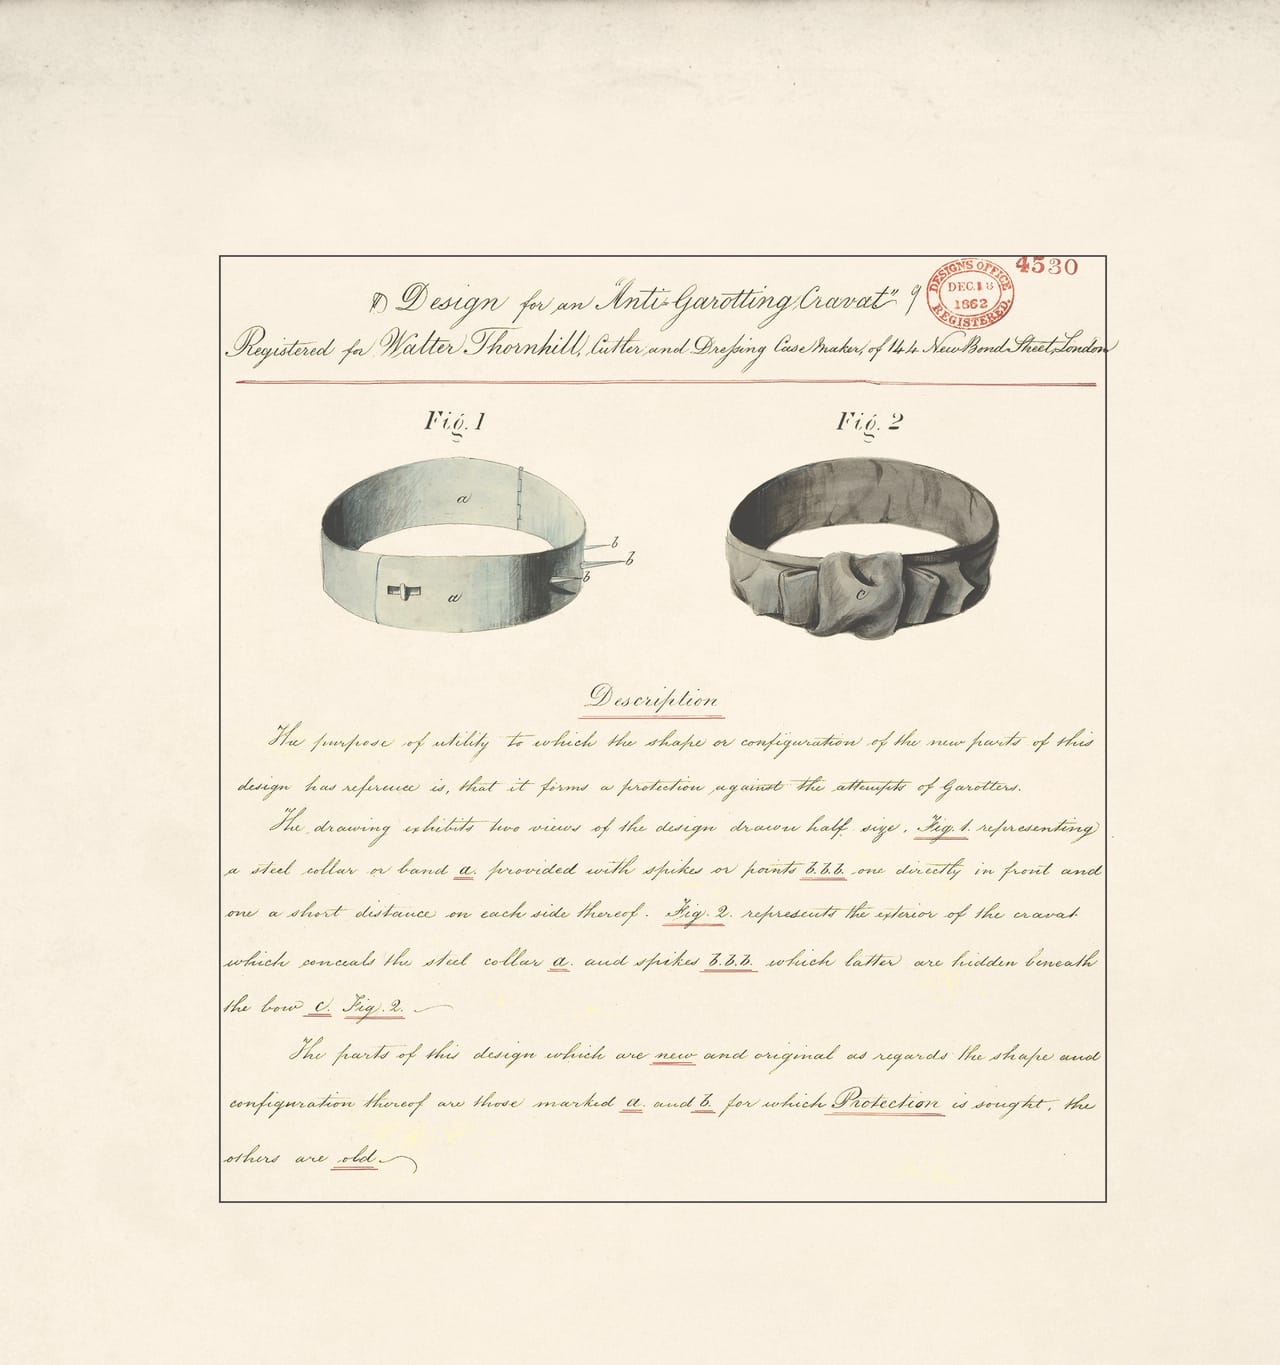 4530
DESIGNS OFFICE
DEC. 18
1862
REGISTERED.
Design for an "Anti-Garotting Cravat"
Registered for Walter Thornhill, Cutler and Dressing Case Maker, of 144 New Bond Street, London
Fig. 1
Fig. 2
a
b
b
a
b
c
Description
The purpose of utility to which the shape or configuration of the new parts of this
design has reference is, that it forms a protection against the attempts of Garotters.
The drawing exhibits two views of the design drawn half size. Fig. 1. representing
a steel collar or band a. provided with spikes or points b.b.b. one directly in front and
one a short distance on each side thereof. Fig. 2. represents the exterior of the cravat
which conceals the steel collar a. and spikes b.b.b. which latter are hidden beneath
the bow c. Fig. 2.
The parts of this design which are new and original as regards the shape and
configuration thereof are those marked a. and b. for which Protection is sought, the
others are old.